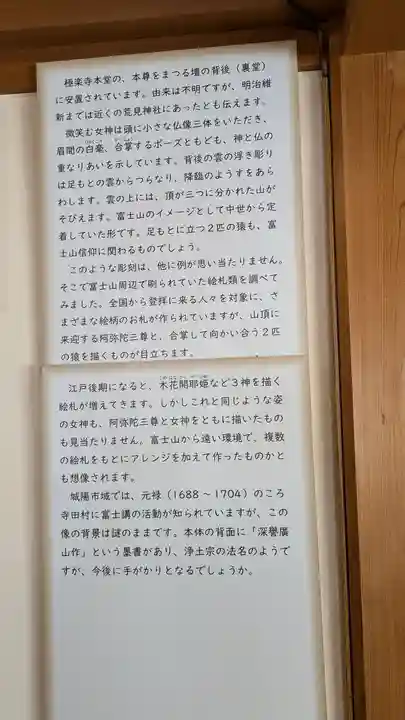 極楽寺本堂の、本尊をまつる壇の背後（裏堂）
に安置されています。由来は不明ですが、明治維
新までは近くの荒見神社にあったとも伝えます。
微笑む女神は頭に小さな仏像三体をいただき、
眉間の白毫、合掌するポーズともども、神と仏の
重なりあいを示しています。背後の雲の浮き彫り
は足もとの雲からつらなり、降臨のようすをあら
わします。雲の上には、頂が三つに分かれた山が
そびえます。富士山のイメージとして中世から定
着していた形です。足もとに立つ２匹の猿も、富
士山信仰に関わるものでしょう。
このような彫刻は、他に例が思い当たりません。
そこで富士山周辺で刷られていた絵札類を調べて
みました。全国から登拝に来る人々を対象に、さ
まざまな絵柄のお札が作られていますが、山頂に
来迎する阿弥陀三尊と、合掌して向かい合う２匹
の猿を描くものが目立ちます。
江戸後期になると、木花開耶姫など３神を描く
絵札が増えてきます。しかしこれと同じような姿
の女神も、阿弥陀三尊と女神をともに描いたもの
も見当たりません。富士山から遠い環境で、複数
の絵札をもとにアレンジを加えて作ったものかと
も想像されます。
城陽市域では、元禄（1688～1704）のころ
寺田村に富士講の活動が知られていますが、この
像の背景は謎のままです。本体の背面に「深譽廣
山作」という墨書があり、浄土宗の法名のようで
すが、今後に手がかりとなるでしょうか。